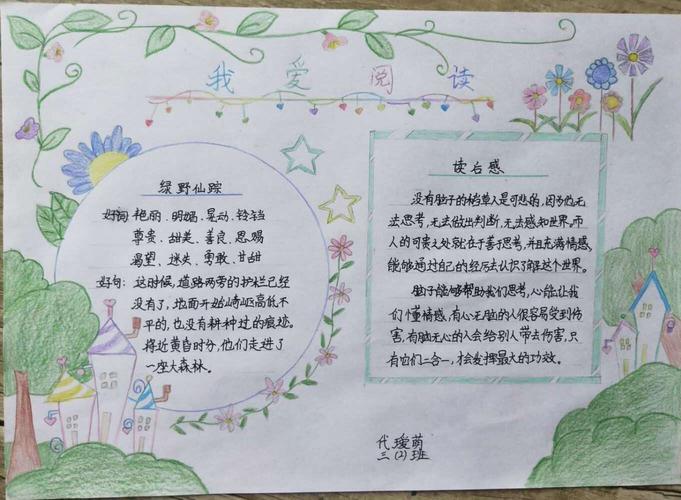 我爱阅读
绿野仙踪
好词：艳丽、明媚、晃动、铃铛
尊贵、甜美、善良、恩赐
渴望、迷失、勇敢、甘甜
好句：这时候，道路两旁的护栏已经
没有了，地面开始崎岖高低不
平的，也没有耕种过的痕迹。
将近黄昏时分，他们走进了
一座大森林。
读后感
没有脑子的稻草人是可悲的，因为他无
法思考，无法做出判断，无法感知世界。而
人的可贵之处就在于善于思考，并且充满情感，
能够通过自己的经历去认识了解这个世界。
脑子能够帮助我们思考，心能让我
们懂情感，有心无脑的人很容易受到伤
害，有脑无心的人会给别人带去伤害，只
有它们二合一，才会发挥最大的功效。
代瑷萌
三（2）班